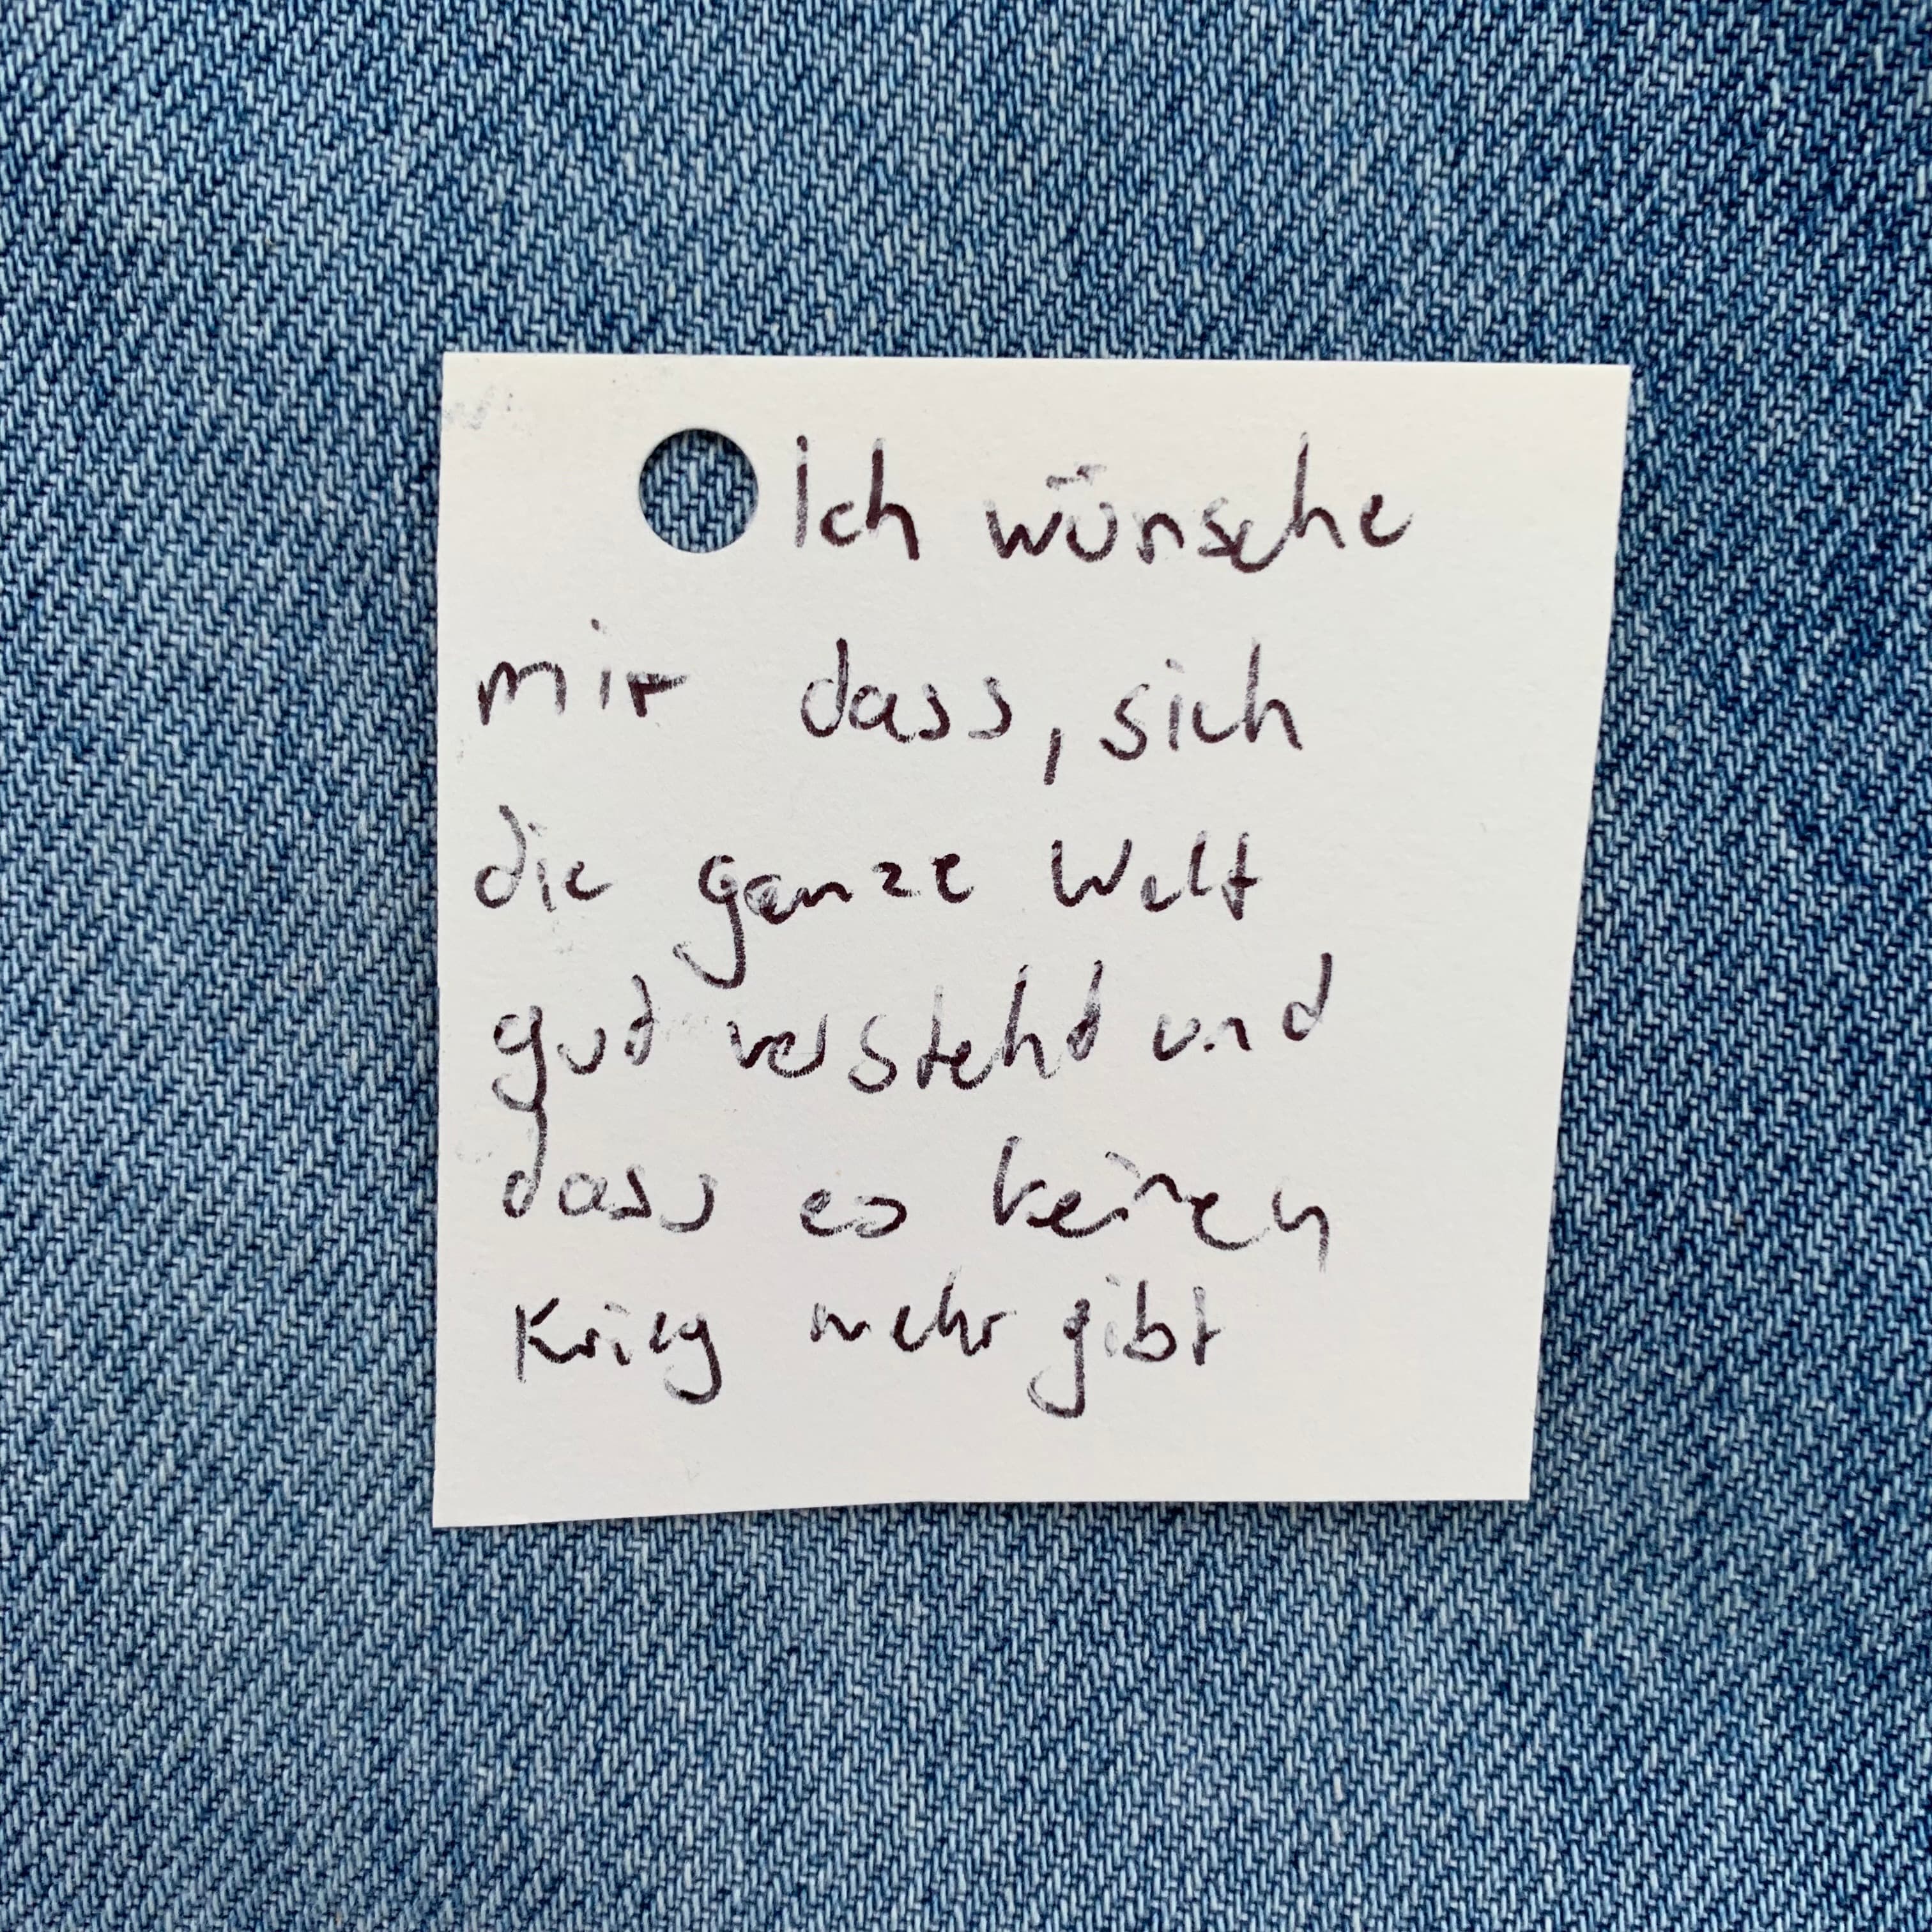 Ich wünsche
mir dass, sich
die ganze Welt
gud verstehd und
dass es keinen
Krieg mehr gibt